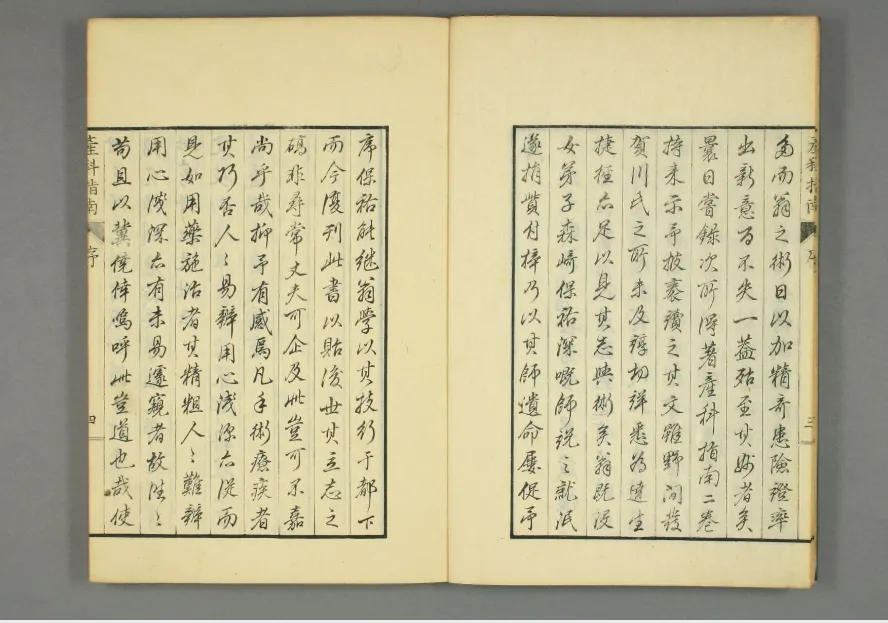 多而翁之術日以加精奇患險證率
出新意百不失一蓋殆至其妙者矣
曩日嘗錄次所得著產科指南二卷
持來示予披褰讀之其文雖野間發
賀川氏之所未及諄切詳悉為達生
捷徑亦足以見其志與術矣翁既沒
女弟子森崎保祐深慨師說之就泯
遂捐貲付梓乃以其師遺命屢促予
產科指南
序
三
序保祐能繼翁學以其技行于都下
而今復刊此書以貽後世其立志之
碻非尋常丈夫可企及此豈可不嘉
尚乎哉抑予有感焉凡手術療疾者
其巧否人〻易辨用心淺深亦從而
見如用藥施治者其精粗人〻難辨
用心淺深亦有未易遽窺者故往〻
苟且以冀僥倖嗚呼此豈道也哉使
產科指南
序
四